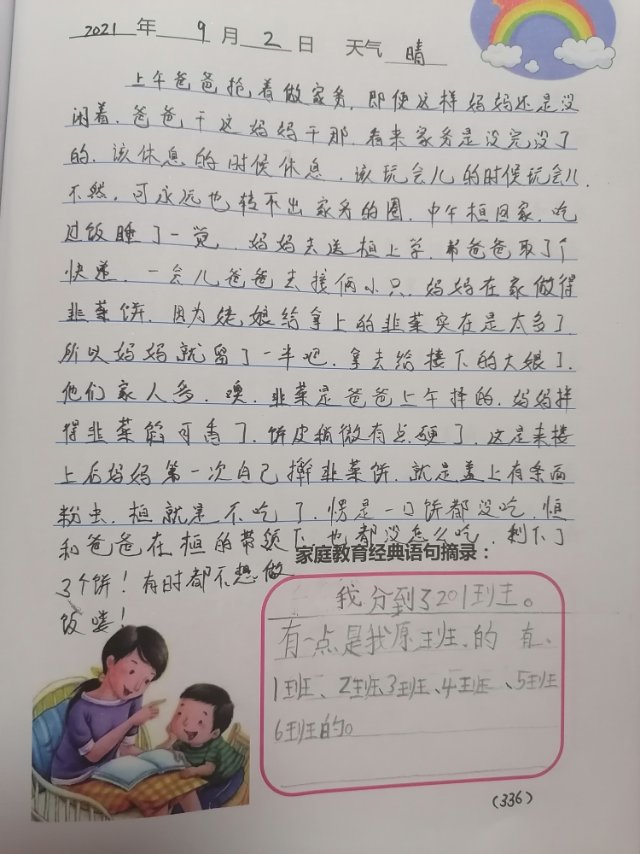 2021 年 9 月 2 日 天气 晴
上午爸爸抢着做家务,即使这样妈妈还是没
闲着,爸爸干这妈妈干那,看来家务是没完没了
的,该休息的时候休息,该玩会儿的时候玩会儿,
不然,可永远也转不出家务的圈,中午桓回家,吃
过饭睡了一觉,妈妈去送桓上学,帮爸爸取了个
快递,一会儿爸爸去接俩小只,妈妈在家做得
韭菜饼,因为姥娘给拿上的韭菜实在是太多了,
所以妈妈就留了一半吧,拿去给楼下的大娘了,
他们家人多,噢,韭菜是爸爸上午择的,妈妈拌
得韭菜馅可香了,饼皮稍微有点硬了,这是来楼
上后妈妈第一次自己擀韭菜饼,就是盖上有条面
粉虫,桓就是不吃了,愣是一口饼都没吃,恒
和爸爸在桓的带领下,也都没怎么吃,剩下了
3个饼!有时都不想做
饭喽!
家庭教育经典语句摘录:
我分到了201班。
有一点是我原班的 有、
1班、2班3班、4班、5班
6班的。
(336)